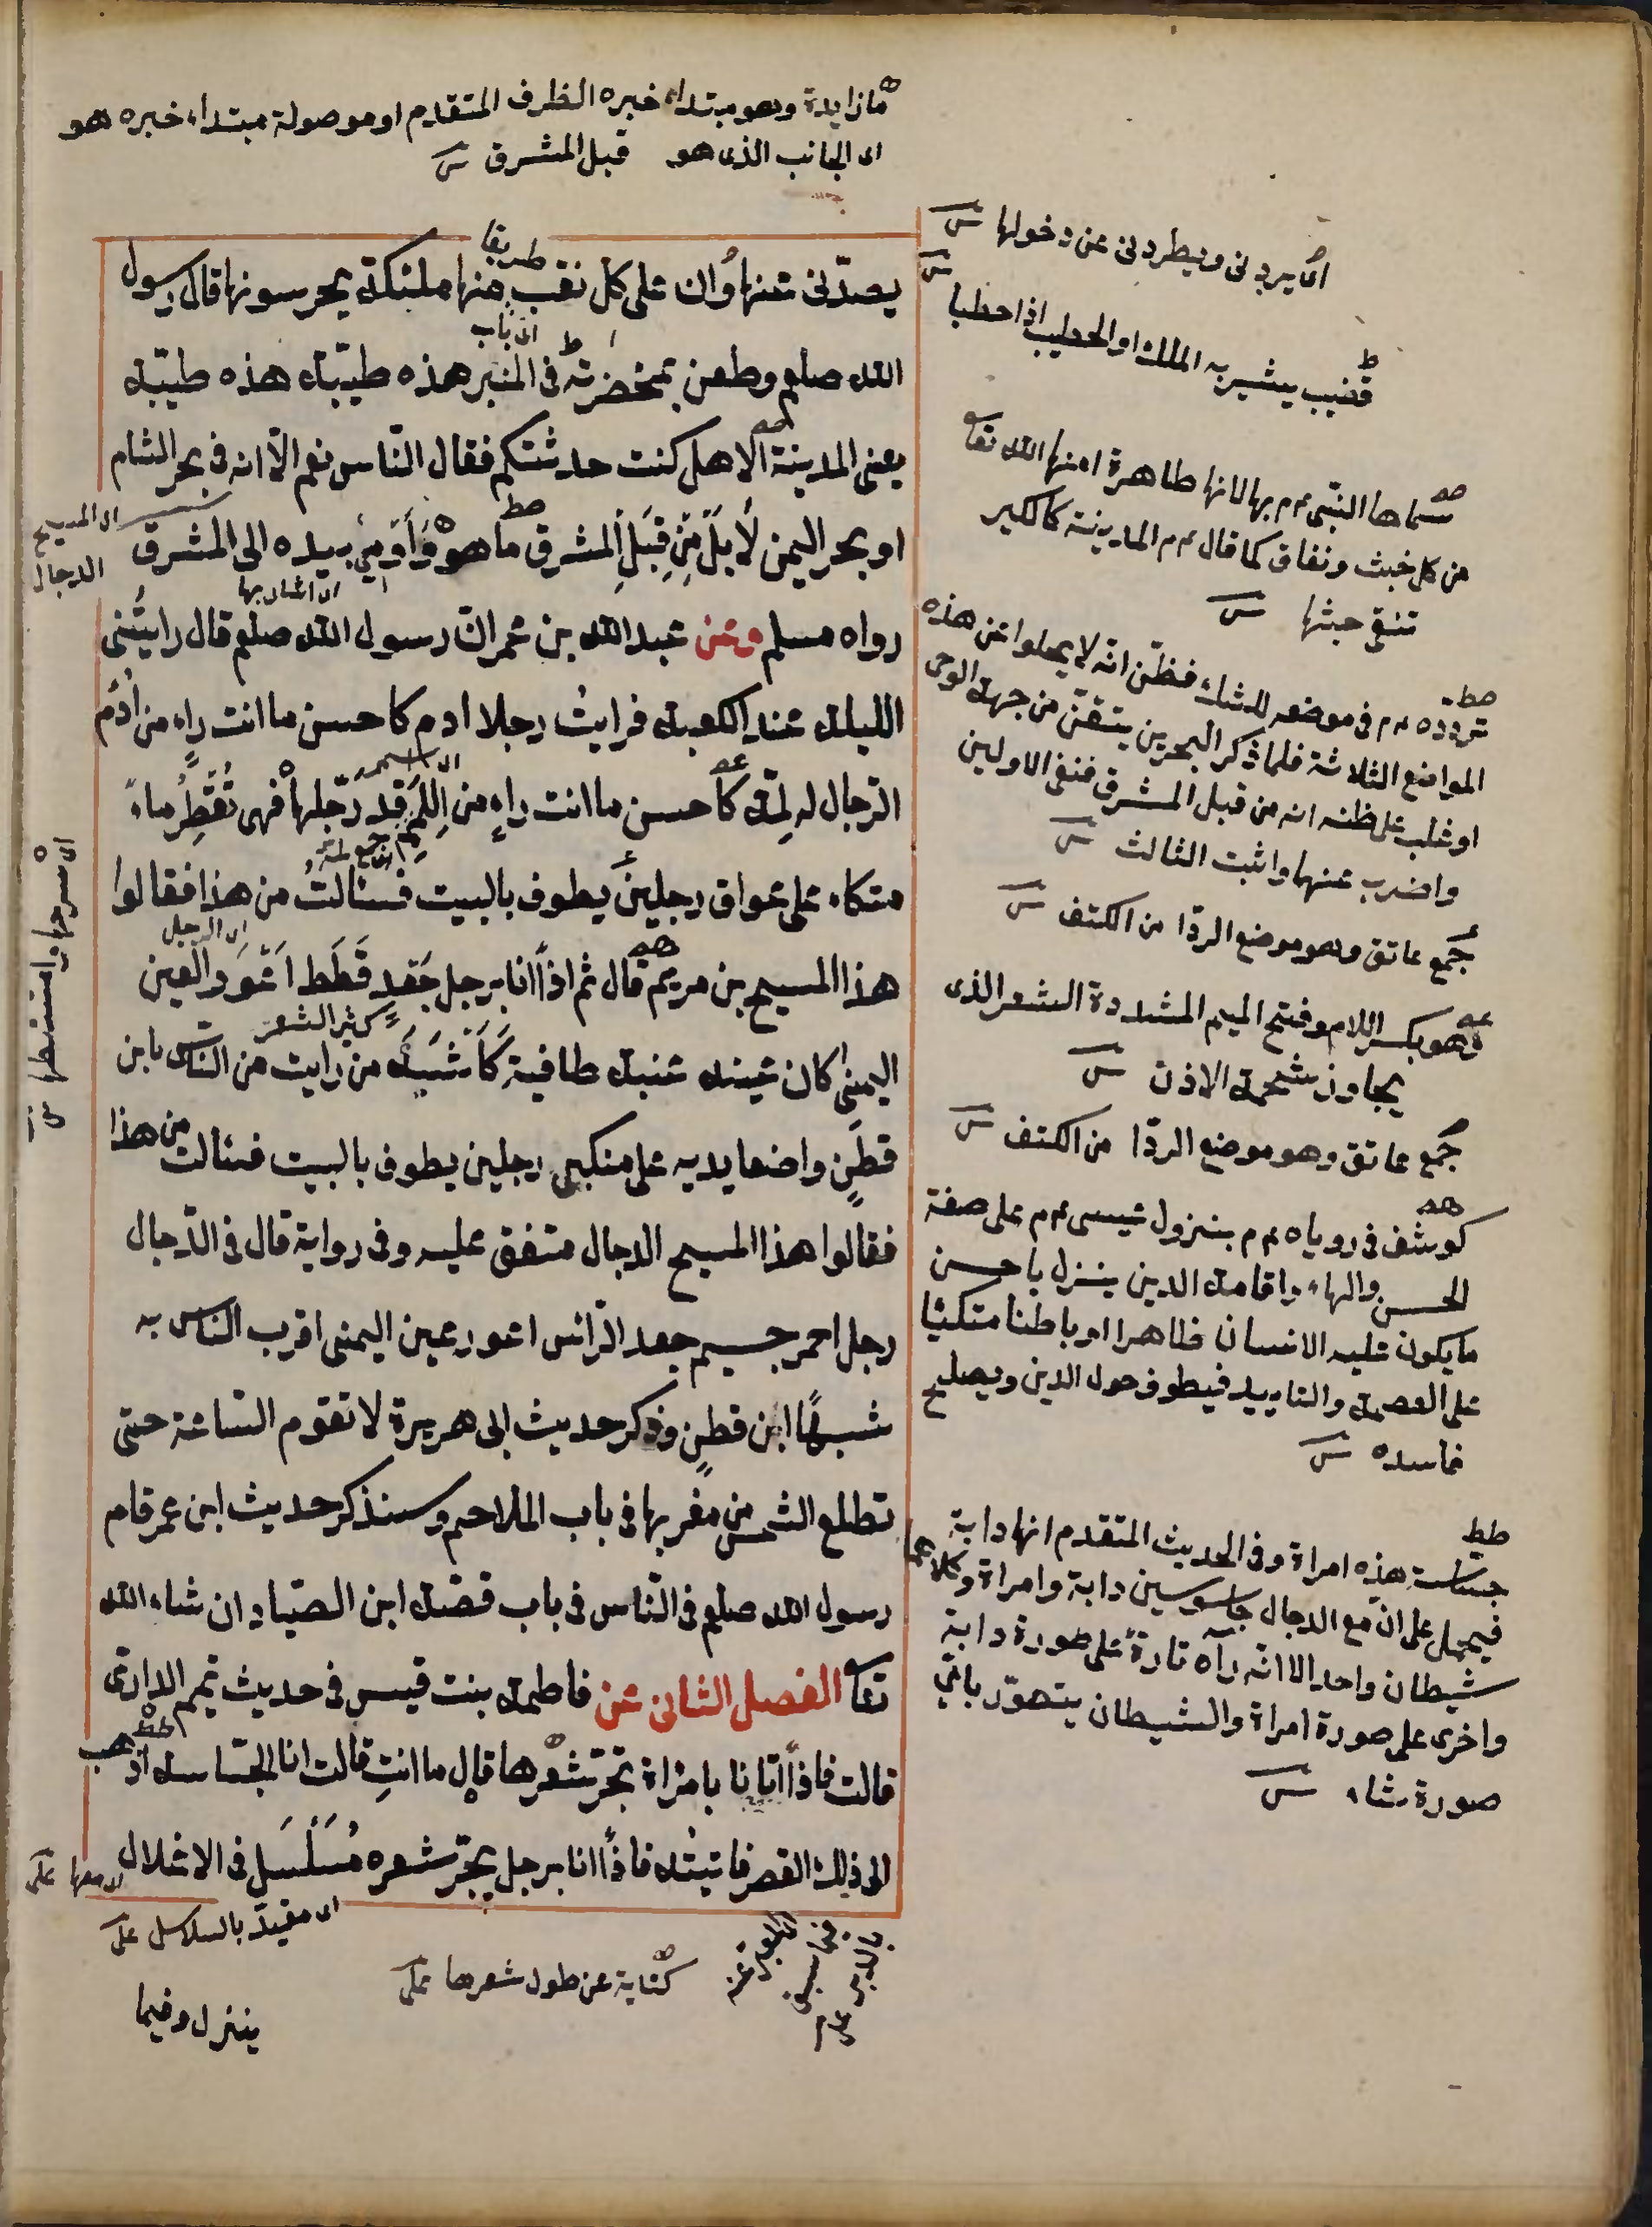 ما زايدة وهو مبتداء خبره الظرف المتقدم او موصولة مبتداء خبره هو
اى الجانب الذى هو قبل المشرق
يصدّنى عنها وان على كل نقب منها ملئكة يحرسونها قال رسول
طريقا
الله صلعم وطعن بمخضرته فى المنبر هذه طيبة هذه طيّبة
اى باب
يعنى المدينة الا هل كنت حدثتكم فقال النّاس نعم الّا انه فى بحر الشام
او بحر اليمن لا بل من قِبَل المشرق ما هو وَأَومئ بيده الى المشرق
اى اشار بها
رواه مسلم وعن عبد الله بن عمر انّ رسول الله صلعم قال رايتُنى
الليلة عند الكعبة فرايتُ رجلا ادم كاحسن ما انت راءٍ من اُدْم
الرّجال له لِمّة كاحسن ما انت راءٍ من اللِمَمِ قد رَجّلها فهى تَقْطِرُ ماءً
متكاء على عواق رجلين يطوف بالبيت فسئالتُ من هذا فقالوا
هذا المسيح بن مريم قال ثم اذا انا برجل جَعْدٍ قَطَط اَعْوَر العين
اى الرجل
اليمنى كان عينه عنبة طافية كَاَشْبَهِ من رايت من النّاس بابن
كثير الشعر
قطنٍ واضعا يديه على منكبى رجلين يطوف بالبيت فسئالت من هذا
فقالوا هذا المسيح الدجال متفق عليه وفى رواية قال فى الدّجال
رجل احمر جسيم جعد الرّائس اعور عين اليمنى اقرب الناس به
شبهًا ابن قطنٍ وذكر حديث ابى هريرة لا تقوم السّاعة حتى
تطلع الشمس من مغربها فى باب الملاحم وسنذكر حديث ابن عمر قام
رسول الله صلعم فى النّاس فى باب قصّة ابن الصّياد ان شاء الله
تعا الفصل الثانى عن فاطمة بنت قيس فى حديث تميم الدارى
قالت فاذا انا بامراة تجرّ شعرها قال ما انتِ قالت انا الجسّاسة اذهب
الى ذلك القصر فاتيتُه فاذا انا برجل يجرّ شعره مُسَلْسَل فى الاغلال
اى مقيد بالسلاسل على
كناية عن طول شعرها على
ينزل وفيما
اى المسيح
الدجال
اى سرحها وامتشطها
اى يردنى ويطردنى عن دخولها
قضيب يشير به الملك او الخطيب اذا خطبا
سماها النبى عم بها لانها طاهرة امنها الله تعا
من كل خبث ونفاق كما قال عم المدينة كالكير
تنقى خبثها
تردده عم فى موضعه للشك فظنّ انّه لا يخلوا عن هذه
المواضع الثلاثة فلما ذكر البحرين يتقن من جهة الوحى
او غلب على ظنه انه من قبل المشرق فنفى الاولين
واضرب عنهما واثبت الثالث
جمع عاتق وهو موضع الردّا من الكتف
وهو بكسر اللام وفتح الميم المشددة الشعر الذى
يجاوز شحمة الاذن
جمع عاتق وهو موضع الردّا من الكتف
كوشف فى روياه عم بنزول عيسى عم على صفة
الحسن والبهاء واقامة الدين ينزل باحسن
ما يكون عليه الانسان ظاهرا او باطنا متكئيا
على العصمة والتاييد فيطوف حول الدين ويصلح
فاسده
جساسة هذه امراة وفى الحديث المتقدم انها دابة
فيحمل على ان مع الدجال جاسوسين دابة وامراة وكلاهما
شيطان واحد الا انه رآه تارةً على صورة دابة
واخرى على صورة امراة والشيطان يتصوّر باىّ
صورة شاء